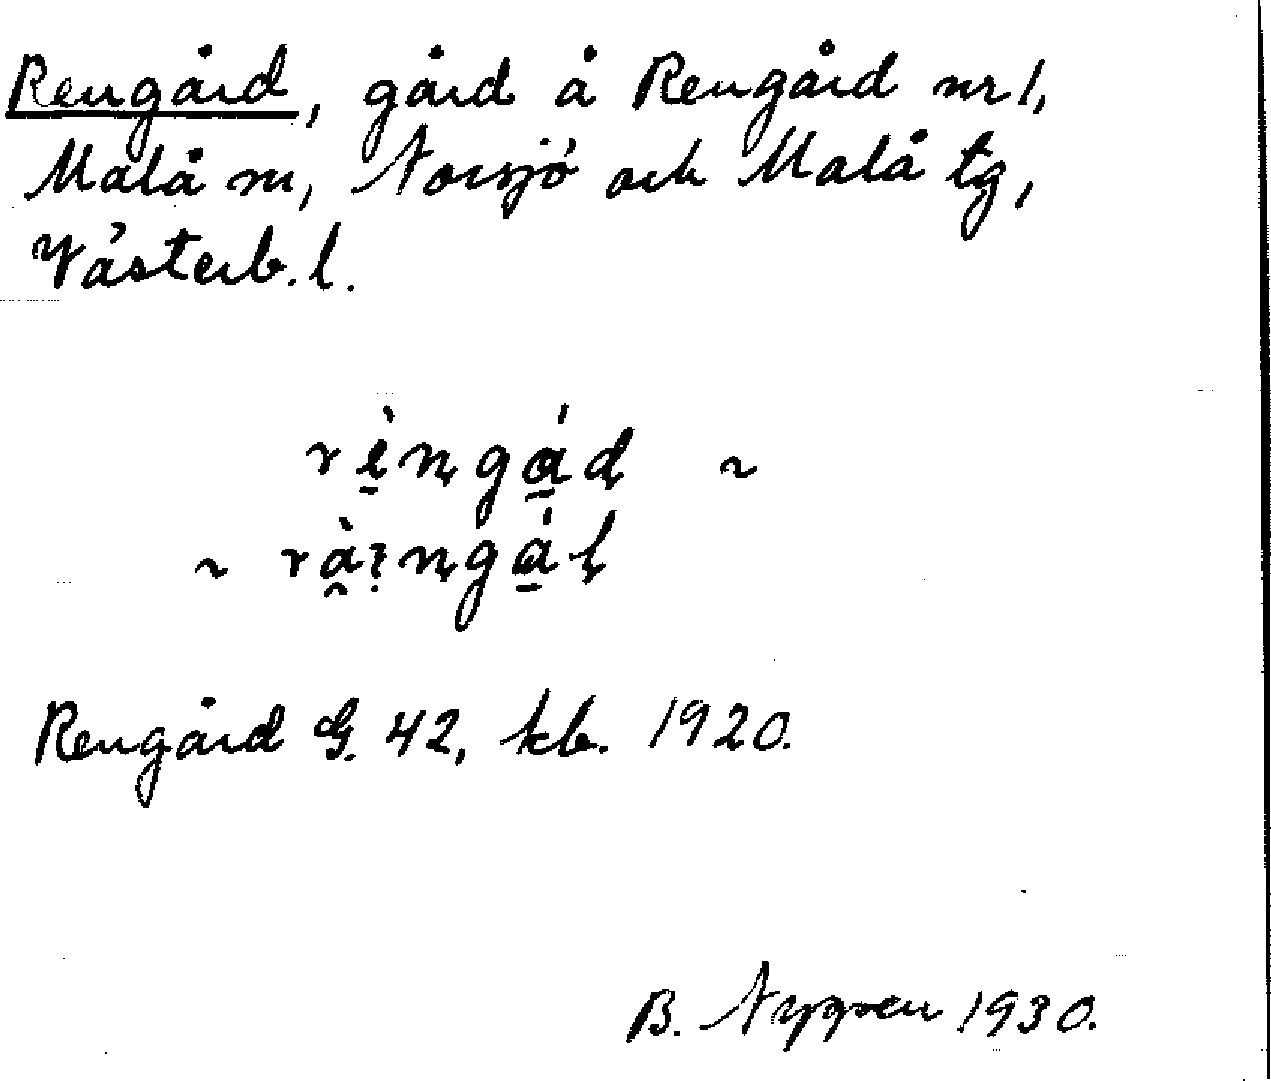 Rengård, gård å Rengård nr 1,
Malå sn, Norsjö och Malå tg,
Västerb. l.
rè̱ngá̱d ~
~ rà̯ı̣ngá̱ḷ
Rengård G. 42, kb. 1920.
B. Nygren 1930.